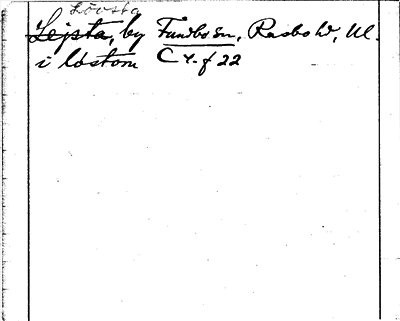 Lövsta
Lejsta, by Funbo sn, Rasbo hd, Ul.
i löstom C 4 f 22